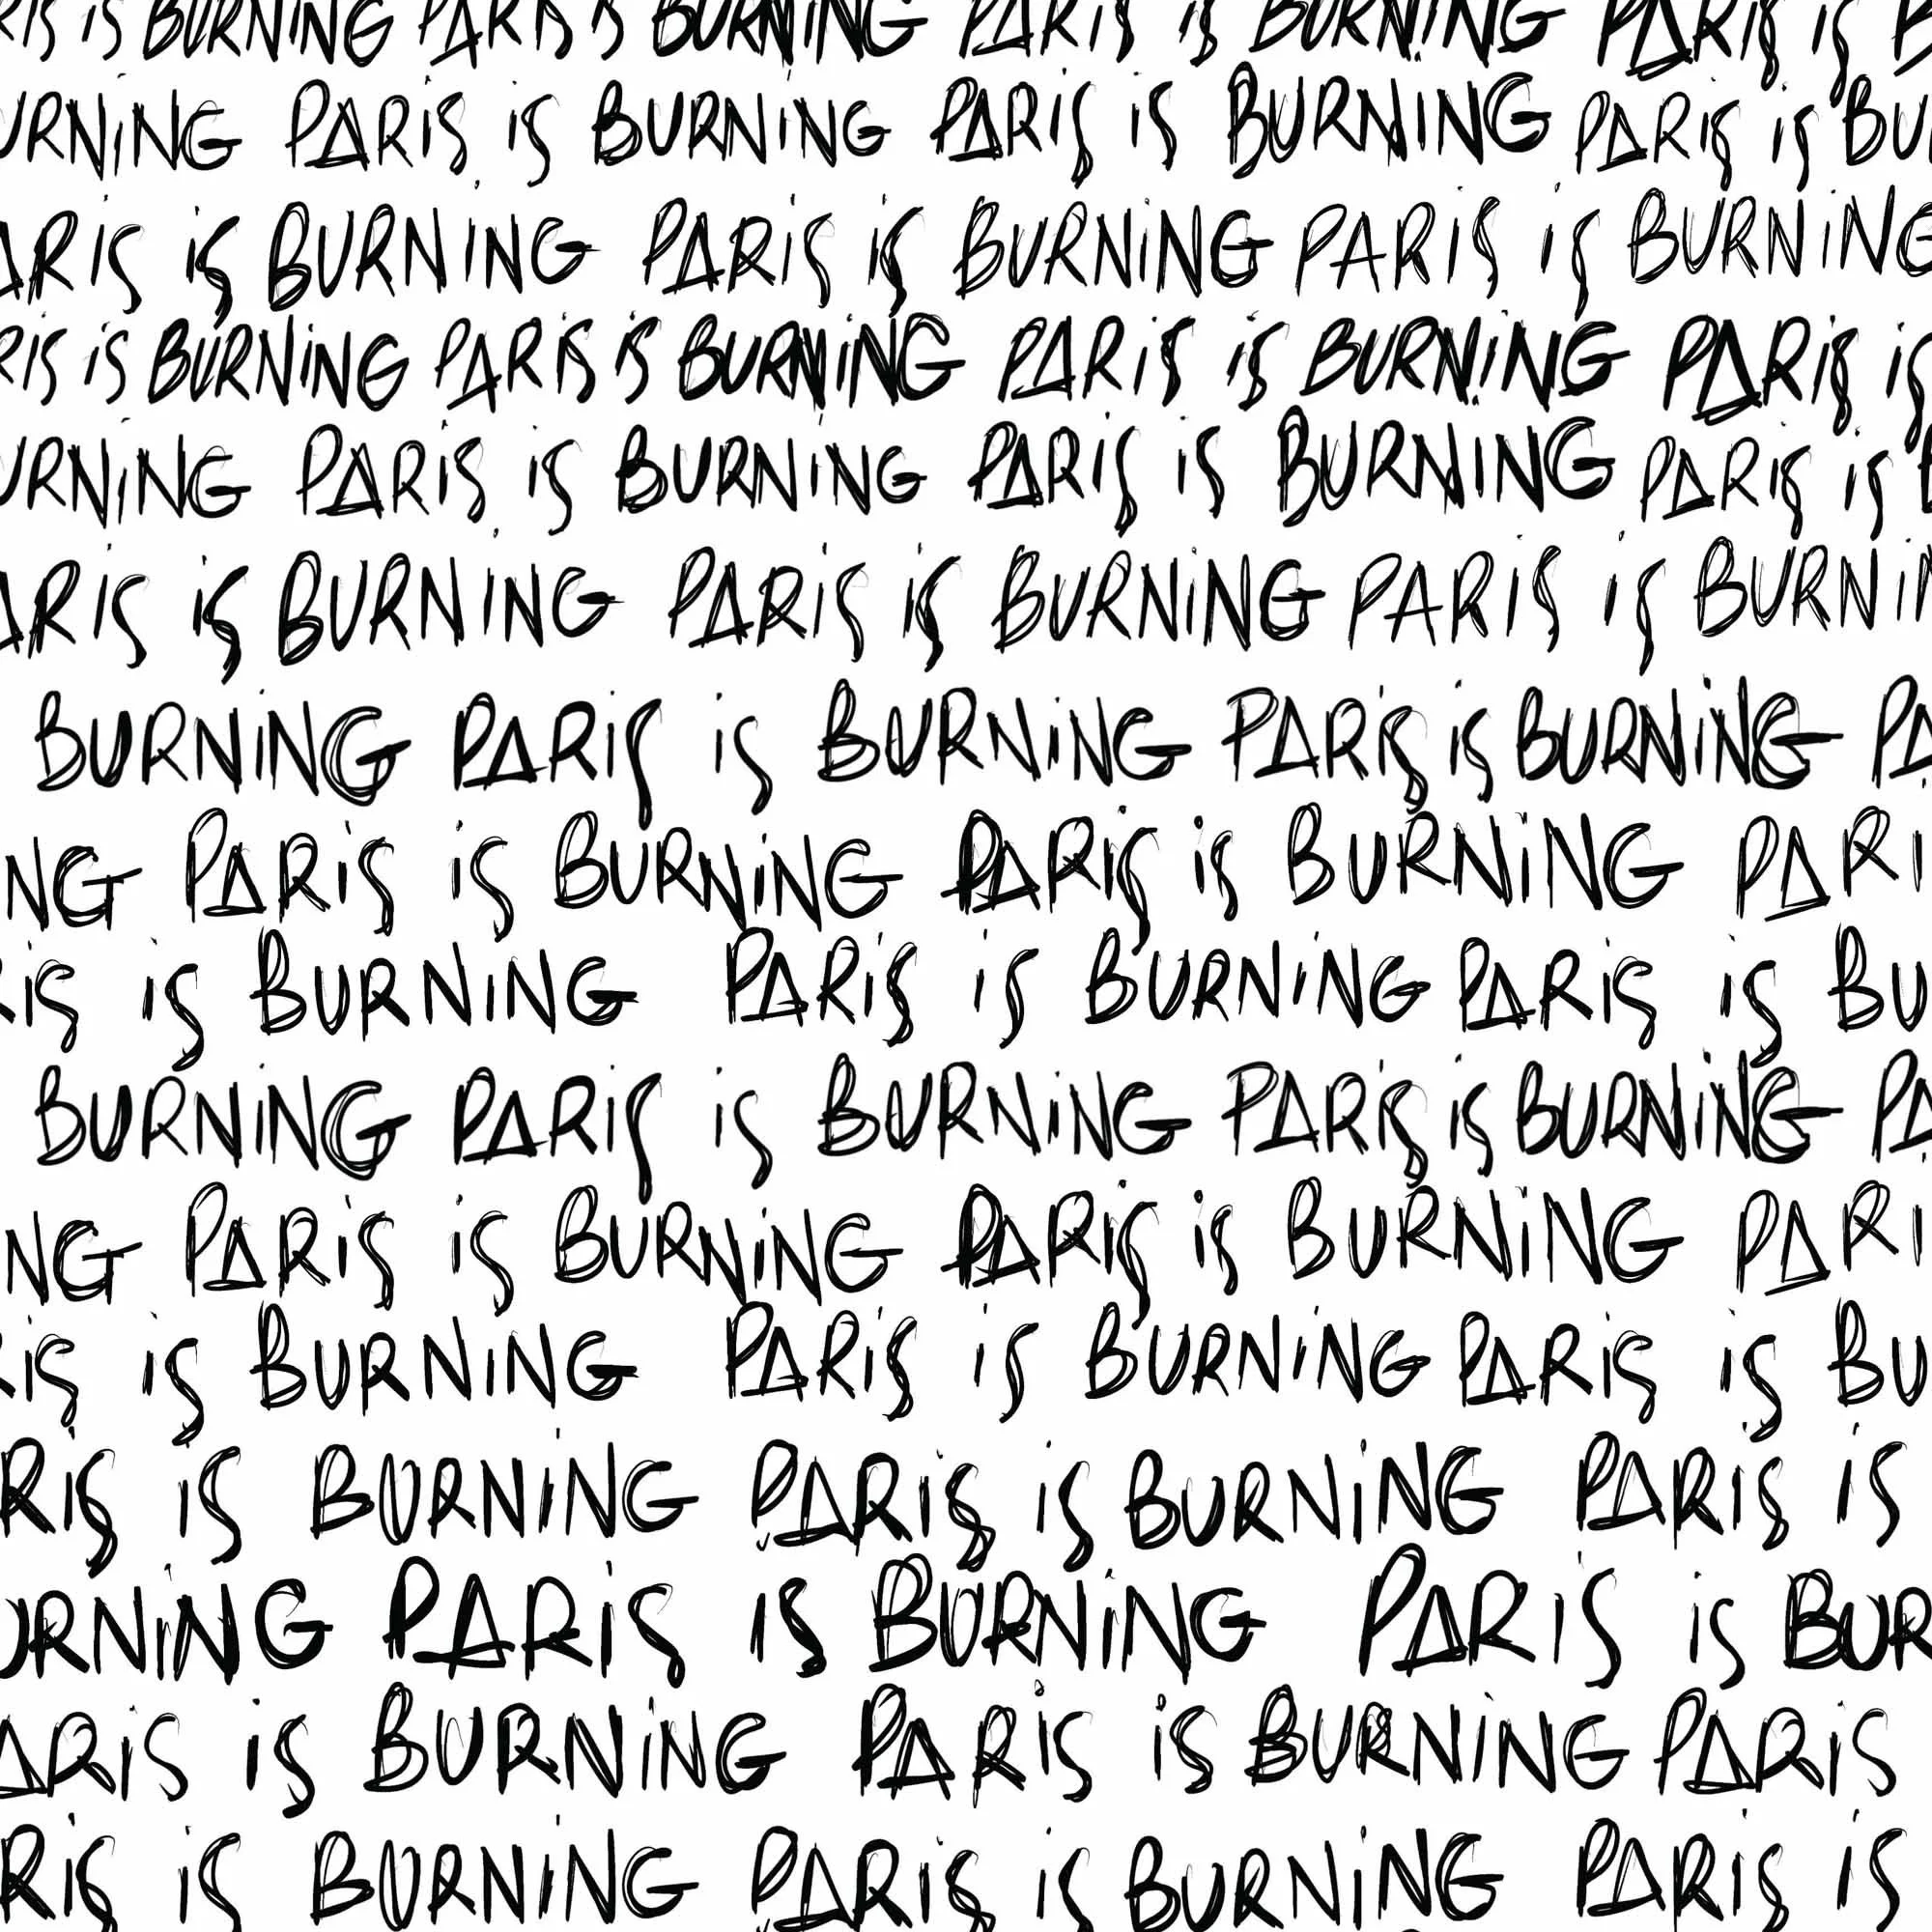 RiS iS BURNiNG PARiS iS BURNiNG PARiS iS BURNiNG PARiS iS B
URNiNG PARiS iS BURNiNG PARiS iS BURNiNG PARiS iS BU
ARiS iS BURNiNG PARiS iS BURNiNG PARiS iS BURNiNG
RiS iS BURNiNG PARiS iS BURNiNG PARiS iS BURNiNG PARiS iS
URNiNG PARiS iS BURNiNG PARiS iS BURNiNG PARiS iS B
ARiS iS BURNiNG PARiS iS BURNiNG PARiS iS BURNiN
BURNiNG PARiS iS BURNiNG PARiS iS BURNiNG PA
NG PARiS iS BURNiNG PARiS iS BURNiNG PARi
RiS iS BURNiNG PARiS iS BURNiNG PARiS iS BU
BURNiNG PARiS iS BURNiNG PARiS iS BURNiNG PA
NG PARiS iS BURNiNG PARiS iS BURNiNG PARi
RiS iS BURNiNG PARiS iS BURNiNG PARiS iS BU
RiS iS BURNiNG PARiS iS BURNiNG PARiS iS
URNiNG PARiS iS BURNiNG PARiS iS BUR
ARiS iS BURNiNG PARiS iS BURNiNG PARiS
RiS iS BURNiNG PARiS iS BURNiNG PARiS iS